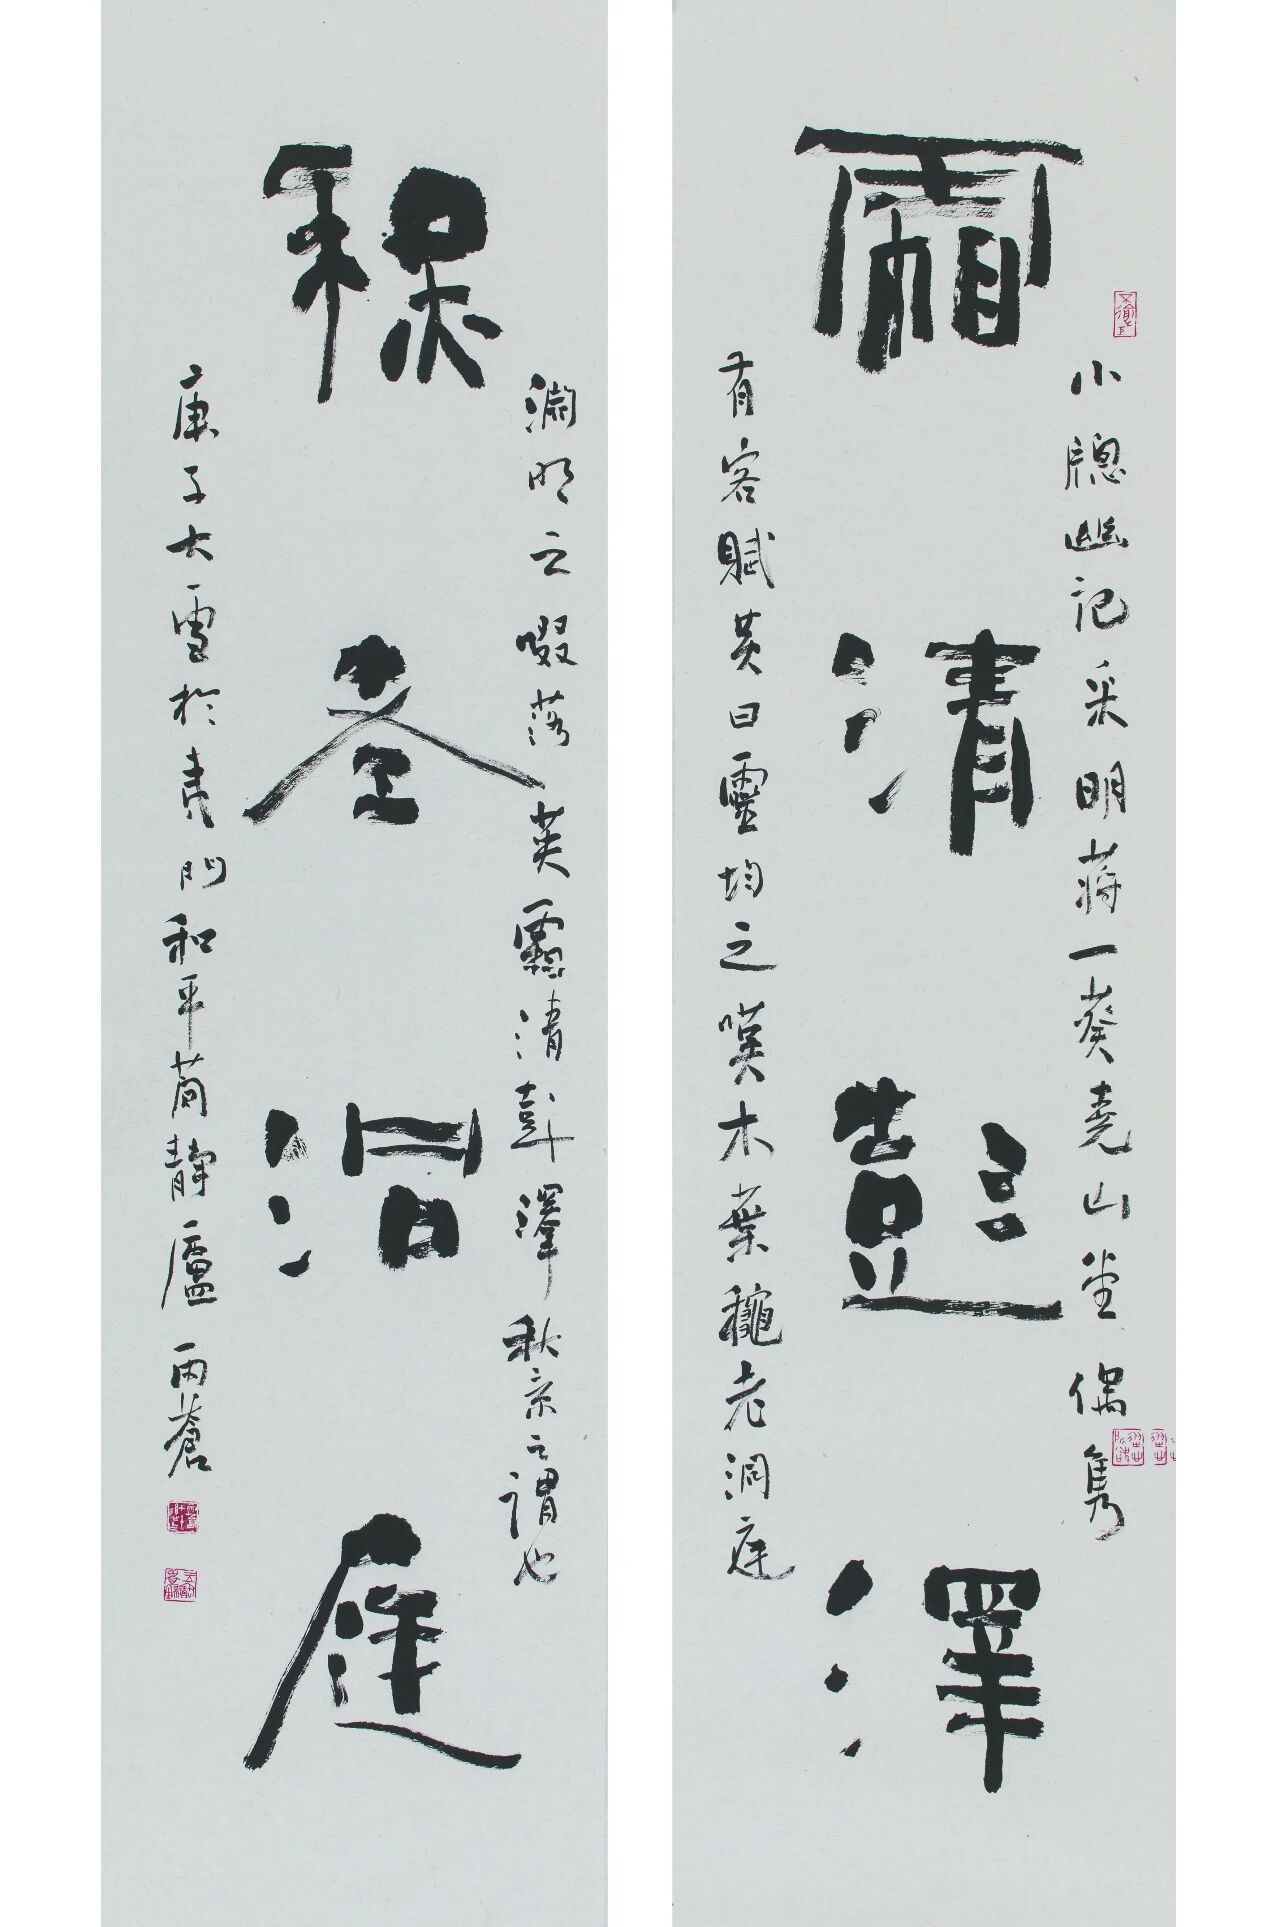 小牕幽記采明蔣一葵堯山堂偶雋
霜清彭澤
有客賦黄曰靈均之嘆木葉穐老洞庭
淵明之啜落英霜清彭澤秋京之謂也
老洞庭
庚子大雪於青門和平蕳靜廬雨蒼